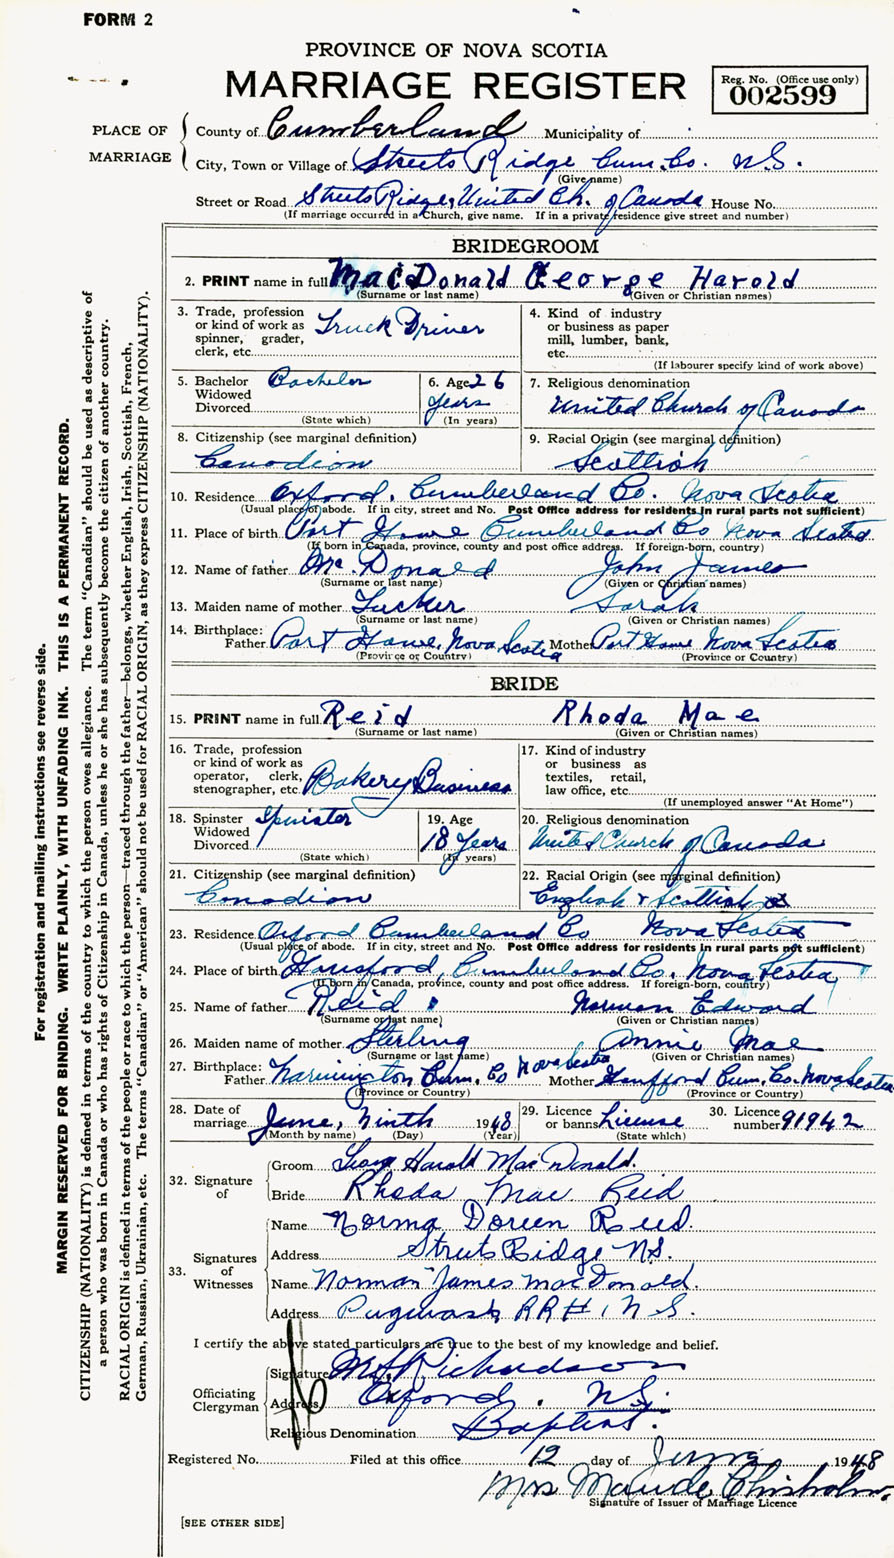 FORM 2
PROVINCE OF NOVA SCOTIA
MARRIAGE REGISTER
Reg. No. (Office use only)
002599
PLACE OF MARRIAGE
County of Cumberland Municipality of
City, Town or Village of Streets Ridge Cum. Co. N.S.
(Give name)
Street or Road Streets Ridge, United Ch. of Canada House No.
(If marriage occurred in a Church, give name. If in a private residence give street and number)
BRIDEGROOM
2. PRINT name in full MacDonald George Harold
(Surname or last name) (Given or Christian names)
3. Trade, profession or kind of work as spinner, grader, clerk, etc. Truck Driver
4. Kind of industry or business as paper mill, lumber, bank, etc.
(If labourer specify kind of work above)
5. Bachelor Widowed Divorced Bachelor
(State which)
6. Age 26 years
(In years)
7. Religious denomination
United Church of Canada
8. Citizenship (see marginal definition)
Canadian
9. Racial Origin (see marginal definition)
Scottish
10. Residence Oxford, Cumberland Co. Nova Scotia
(Usual place of abode. If in city, street and No. Post Office address for residents in rural parts not sufficient)
11. Place of birth Port Howe Cumberland Co Nova Scotia
(If born in Canada, province, county and post office address. If foreign-born, country)
12. Name of father McDonald John James
(Surname or last name) (Given or Christian names)
13. Maiden name of mother Tucker Sarah
(Surname or last name) (Given or Christian names)
14. Birthplace: Father Port Howe, Nova Scotia Mother Port Howe Nova Scotia
(Province or Country) (Province or Country)
BRIDE
15. PRINT name in full Reid Rhoda Mae
(Surname or last name) (Given or Christian names)
16. Trade, profession or kind of work as operator, clerk, stenographer, etc. Bakery Business
17. Kind of industry or business as textiles, retail, law office, etc.
(If unemployed answer "At Home")
18. Spinster Widowed Divorced Spinster
(State which)
19. Age 18 Years
(In years)
20. Religious denomination
United Church of Canada
21. Citizenship (see marginal definition)
Canadian
22. Racial Origin (see marginal definition)
English & Scottish
23. Residence Oxford Cumberland Co Nova Scotia
(Usual place of abode. If in city, street and No. Post Office address for residents in rural parts not sufficient)
24. Place of birth Hansford, Cumberland Co. Nova Scotia
(If born in Canada, province, county and post office address. If foreign-born, country)
25. Name of father Reid Norman Edward
(Surname or last name) (Given or Christian names)
26. Maiden name of mother Sterling Annie Mae
(Surname or last name) (Given or Christian names)
27. Birthplace: Father Cum. Co Nova Scotia Mother Cum. Co. Nova Scotia
(Province or Country) (Province or Country)
28. Date of marriage June, Ninth 1948
(Month by name) (Day) (Year)
29. Licence or banns License
(State which)
30. Licence number 91942
32. Signature of
Groom Harold MacDonald.
Bride Rhoda Mae Reid
33. Signatures of Witnesses
Name Norma Doreen Reid.
Address Streets Ridge N.S.
Name Norman James MacDonald.
Address Pugwash RR#1 N S.
I certify the above stated particulars are true to the best of my knowledge and belief.
Officiating Clergyman
Signature Richardson
Address Oxford. N.S.
Religious Denomination Baptist.
Registered No. Filed at this office 12 day of June 1948
Mrs Maude Chisholm.
Signature of Issuer of Marriage Licence
[SEE OTHER SIDE]
For registration and mailing instructions see reverse side.
MARGIN RESERVED FOR BINDING. WRITE PLAINLY, WITH UNFADING INK. THIS IS A PERMANENT RECORD.
CITIZENSHIP (NATIONALITY) is defined in terms of the country to which the person owes allegiance. The term "Canadian" should be used as descriptive of
a person who was born in Canada or who has rights of Citizenship in Canada, unless he or she has subsequently become the citizen of another country.
RACIAL ORIGIN is defined in terms of the people or race to which the person—traced through the father—belongs, whether English, Irish, Scottish, French,
German, Russian, Ukrainian, etc. The terms "Canadian" or "American" should not be used for RACIAL ORIGIN, as they express CITIZENSHIP (NATIONALITY).